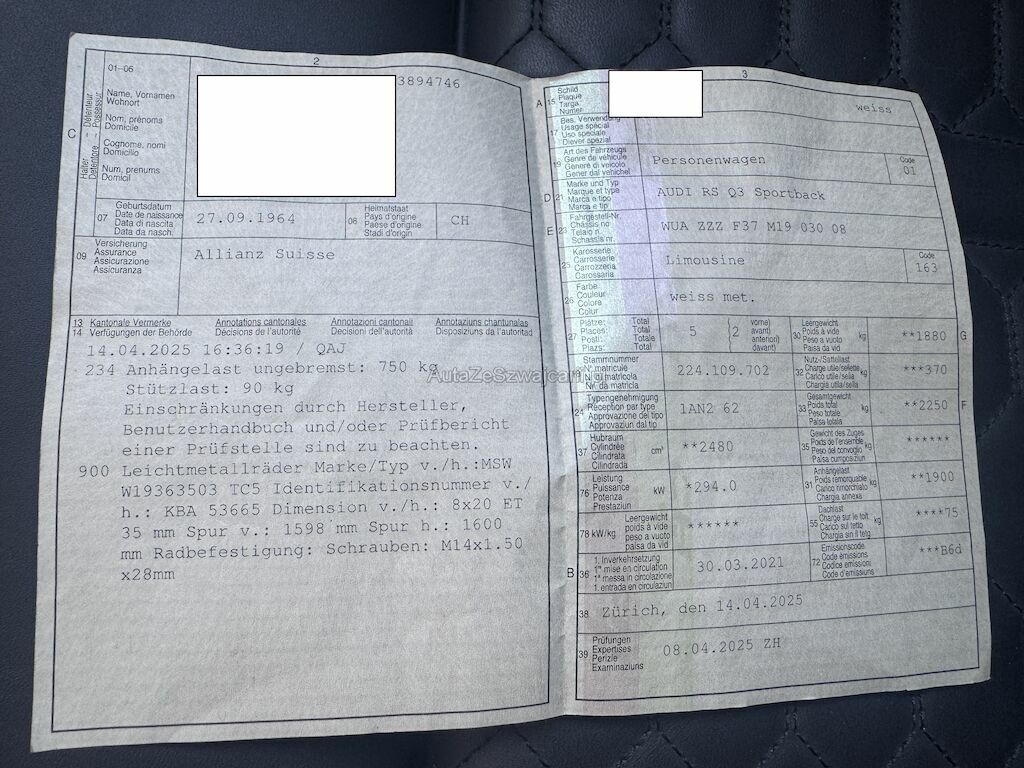 2
01-06
3894746
C
Halter Détenteur
Detentore Possessur
Name, Vornamen
Wohnort
Nom, prénoms
Domicile
Cognome, nomi
Domicilio
Num, prenums
Domicil
07
Geburtsdatum
Date de naissance
Data di nascita
Data da nasch.
27.09.1964
08
Heimatstaat
Pays d'origine
Paese d'origine
Stadi d'origin
CH
09
Versicherung
Assurance
Assicurazione
Assicuranza
Allianz Suisse
13 Kantonale Vermerke Annotations cantonales Annotazioni cantonali Annotaziuns chantunalas
14 Verfügungen der Behörde Décisions de l'autorité Decisioni dell'autorità Disposiziuns da l'autoritad
14.04.2025 16:36:19 / QAJ
234 Anhängelast ungebremst: 750 kg
Stützlast: 90 kg
Einschränkungen durch Hersteller,
Benutzerhandbuch und/oder Prüfbericht
einer Prüfstelle sind zu beachten.
900 Leichtmetallräder Marke/Typ v./h.:MSW
W19363503 TC5 Identifikationsnummer v./
h.: KBA 53665 Dimension v./h.: 8x20 ET
35 mm Spur v.: 1598 mm Spur h.: 1600
mm Radbefestigung: Schrauben: M14x1.50
x28mm
3
A
15
Schild
Plaque
Targa
Numer
weiss
17
Bes. Verwendung
Usage spécial
Uso speciale
Diever spezial
19
Art des Fahrzeugs
Genre de véhicule
Genere di veicolo
Gener dal vehichel
Personenwagen
Code
01
D
21
Marke und Typ
Marque et type
Marca e tipo
Marca e tip
AUDI RS Q3 Sportback
E
23
Fahrgestell-Nr.
Châssis no
Telaio n.
Schassis nr.
WUA ZZZ F37 M19 030 08
25
Karosserie
Carrosserie
Carrozzeria
Carossaria
Limousine
Code
163
26
Farbe
Couleur
Colore
Colur
weiss met.
27
Plätze: Total
Places: Total
Posti: Totale
Plazs: Total
5
2
vorne)
avant)
anteriori)
davant)
30
Leergewicht
Poids à vide
Peso a vuoto
Paisa da vid
kg
**1880
G
Stammnummer
N° matricule
N. di matricola
Nr. da matricla
224.109.702
32
Nutz-/Sattellast
Charge utile/sellette
Carico utile/sella
Chargia utila/sella
kg
***370
24
Typengenehmigung
Réception par type
Approvazione del tipo
Approvaziun dal tip
1AN2 62
33
Gesamtgewicht
Poids total
Peso totale
Paisa totala
kg
**2250
F
37
Hubraum
Cylindrée
Cilindrata
Cilindrada
cm³
**2480
35
Gewicht des Zuges
Poids de l'ensemble
Peso del convoglio
Paisa cumposiziun
kg
******
76
Leistung
Puissance
Potenza
Prestaziun
kW
*294.0
31
Anhängelast
Poids remorquable
Carico rimorchiato
Chargia annexa
kg
**1900
78 kW/kg
Leergewicht
poids à vide
peso a vuoto
paisa da vid
******
55
Dachlast
Charge sur le toit
Carico sul tetto
Chargia sin il tetg
kg
****75
B
36
1. Inverkehrsetzung
1re mise en circulation
1a messa in circolazione
1. entrada en circulaziun
30.03.2021
72
Emissionscode
Code émissions
Codice emissioni
Code d'emissiuns
***B6d
38 Zürich, den 14.04.2025
39
Prüfungen
Expertises
Perizie
Examinaziuns
08.04.2025 ZH